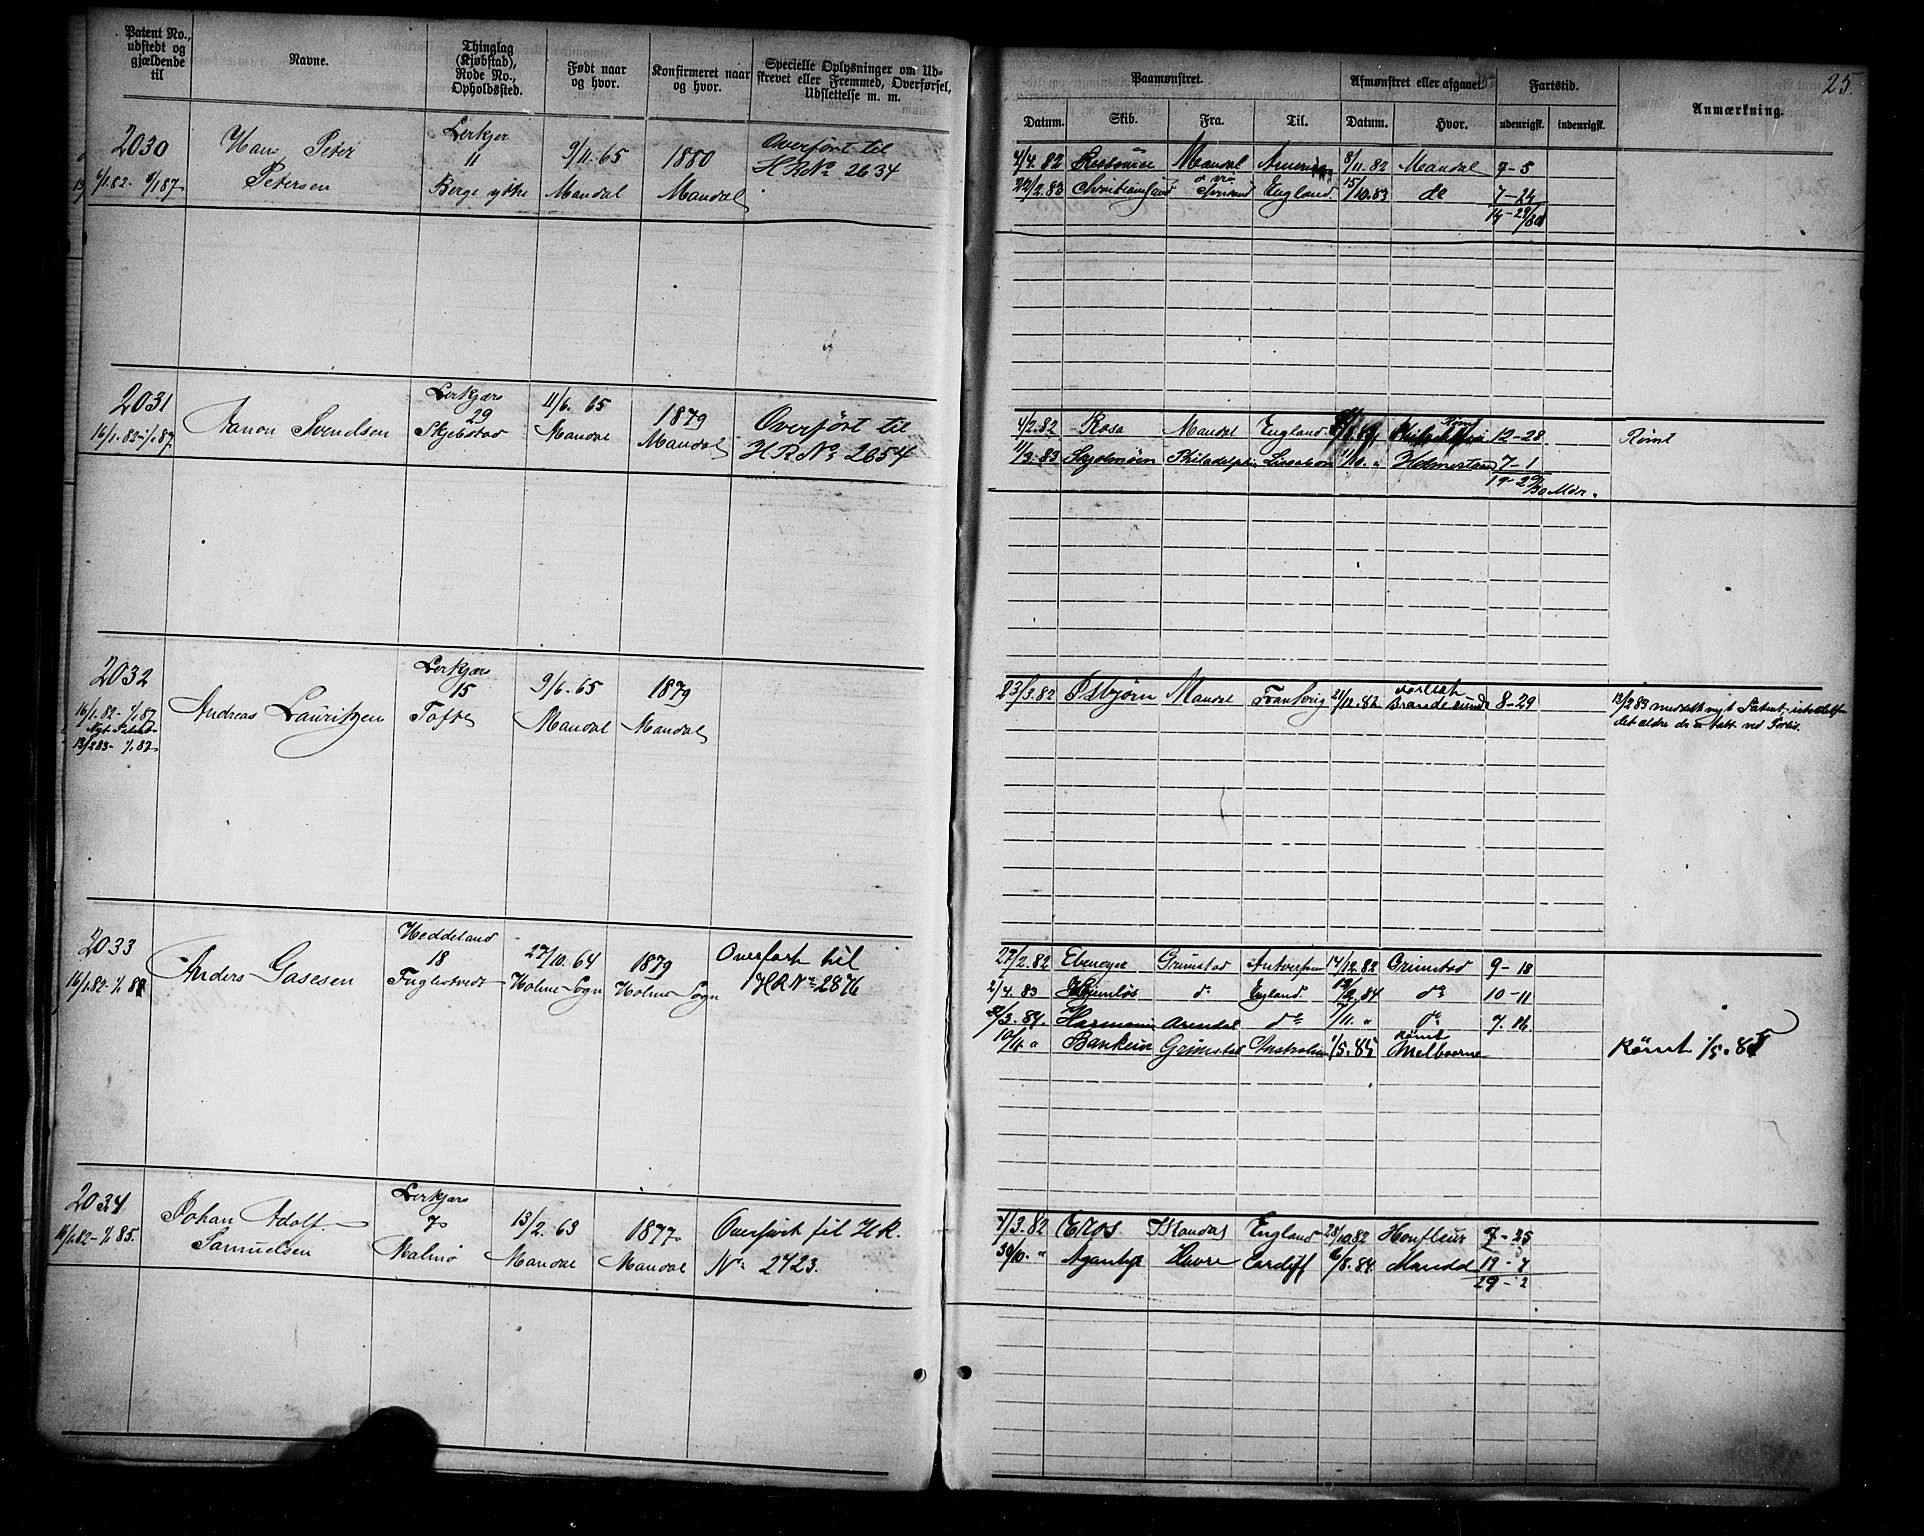 Patent No., udstedt og gjældende til
Navne.
Thinglag (Kjøbstad), Rode No., Opholdssted.
Født naar og hvor.
Konfirmeret naar og hvor.
Specielle Oplysninger om Udskrevet eller Fremmed, Overførsel, Udslettelse m. m.
Paamønstret.
Afmønstret eller afgaaet.
Fartstid.
Anmærkning.
25.
Datum.
Skib.
Fra.
Til.
Datum.
Hvor.
udenrigsk.
indenrigsk.
2030
Hans Peter
Petersen
11
9/11. 65
Mandal
1880
Mandal
Overført til
H R No 2634
4/4. 82
Mandal
8/11. 82 Mandal 9-5
22/2. 83
England. 15/10. 83 do 7-24
2031
16/1. 82-1/1. 87
Aanon Svendsen
Lerkjærs
29
Skjebstad
11/6. 65
Mandal
1879
Mandal
Overført til
H R No 2654
4/2. 82 Rosa Mandal England
Rømt
12-28
Rømt
11/9. 83
Philadelphia
11/10. " Holmestrand 7-1
2032
16/1. 82-1/1. 87
Nyt Patent
13/2 83-1/1. 87
Andreas Lauritzen
Lerkjærs
15
Tofte
9/6. 65
Mandal
1879
Mandal
23/3. 82 Isbjørn Mandal
21/12. 82
8-29
2033
Anders Gasesen
Heddeland
18
Fuglestvedt
27/10. 64
Holme Sogn
1879
Holme Sogn
Overført til
HR No 2876
27/2. 82
Grimstad Antverpen 14/12. 82 Grimstad 9-18
2/4. 83
do England.
do 10-11
Arendal do 7/11. " do 7. 16
10/11. "
Grimstad Australien 1/5. 85
Rømt
Melbourne
Rømt 1/5. 85
2034
16/1. 82-1/1. 85.
Johan Adolf
Samuelsen
Lerkjærs
7
Malmø
13/2. 63
Mandal
1877
Mandal
Overført til H R.
No 2723.
4/3. 82 Eros Mandal England 28/10. 82 Honfleur 7-25
30/10. "
Havre Cardiff 6/8. 84. Mandal
29-2